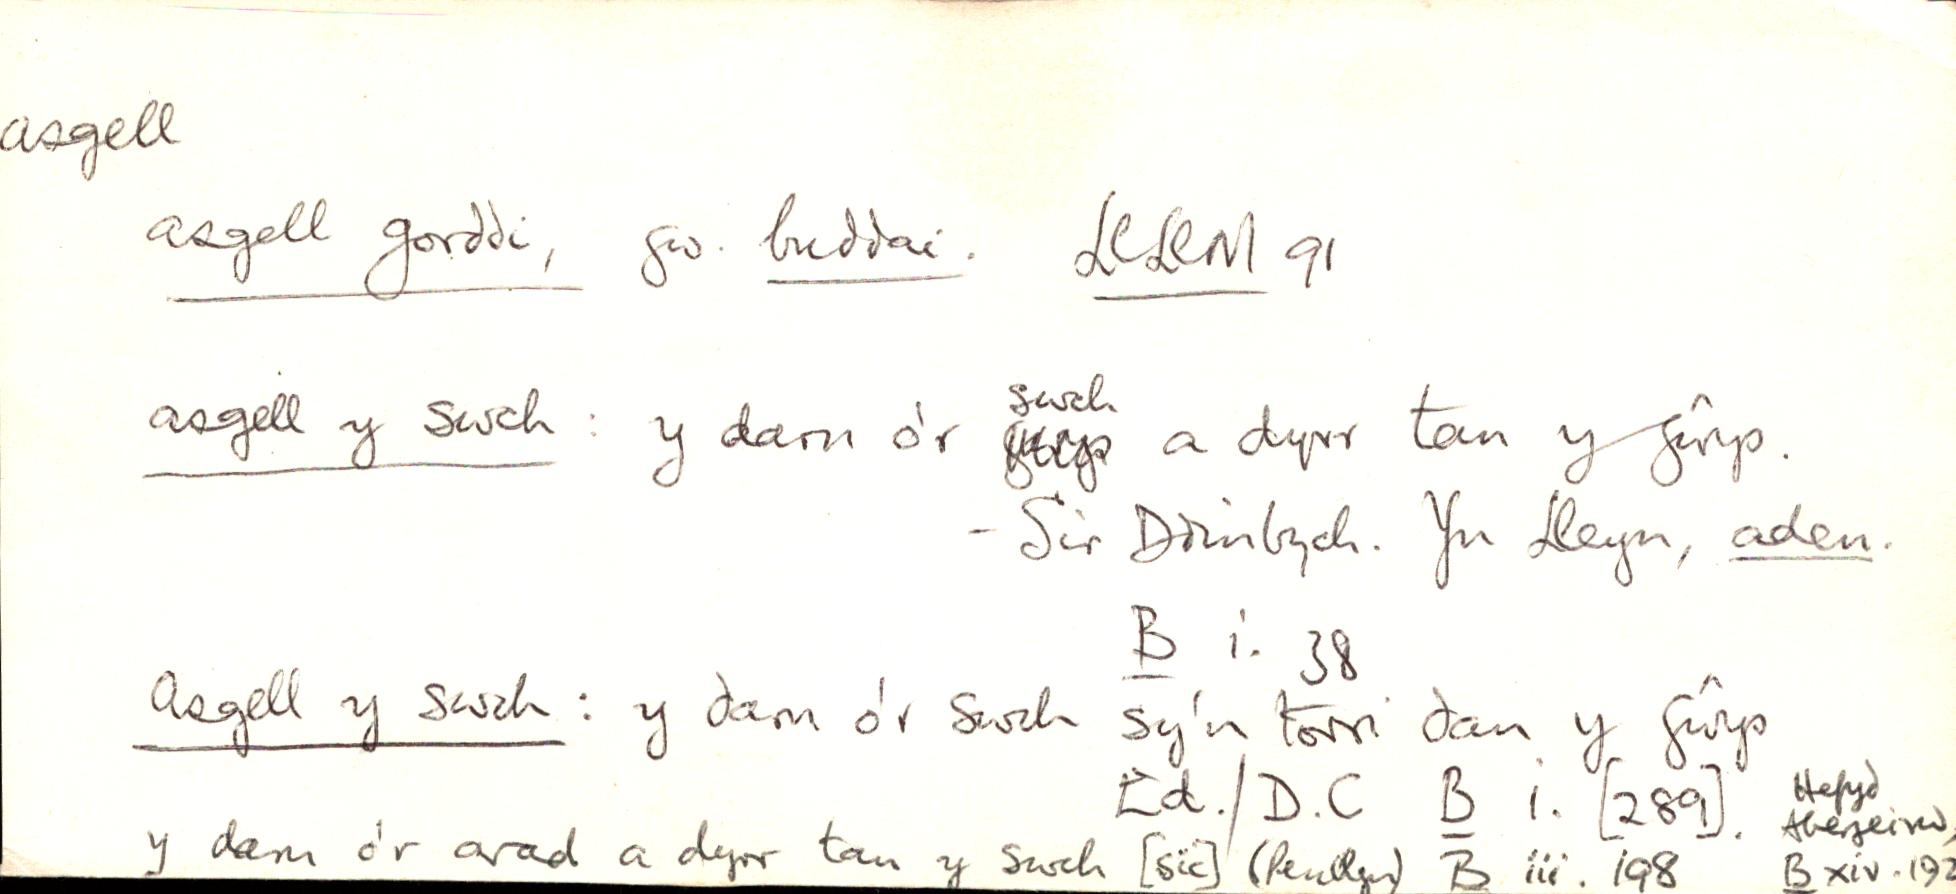 asgell
asgell gorddi, gw. buddai. LlLlM 91
swch
asgell y swch : y darn o'r a dyrr tan y gŵys.
- Sir Ddinbych. Yn Lleyn, aden.
B i. 38
Asgell y swch : y darn o'r swch sy'n torri dan y gŵys
Ed./D.C B i. [289]. Hefyd
y darn o'r arad a dyrr tan y swch [sic] (Penllyn) B iii. 198 B xiv. 192